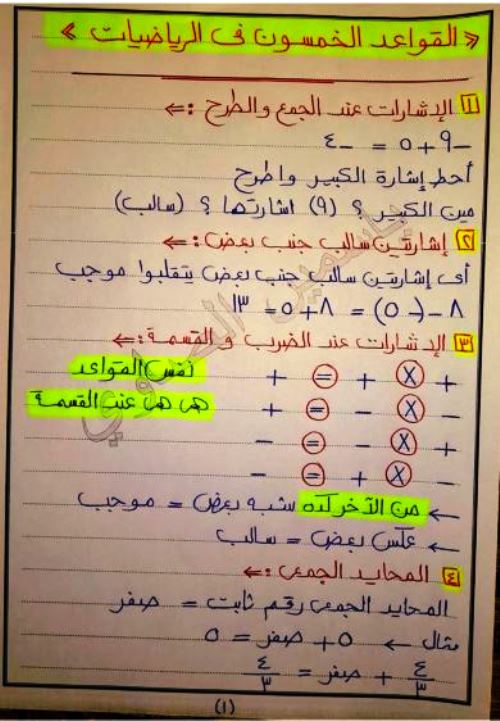 « القواعد الخمسون فى الرياضيات »
١ الإشارات عند الجمع والطرح :⇐
-٩ + ٥ = -٤
أحط إشارة الكبير واطرح
مين الكبير ؟ (٩) اشارتها ؟ (سالب)
٢ إشارتين سالب جنب بعض :⇐
أى إشارتين سالب جنب بعض يتقلبوا موجب
٨ - (-٥) = ٨ + ٥ = ١٣
٣ الإشارات عند الضرب والقسمة :⇐
+ × + = + نفس القواعد
- × - = + هى هى عند القسمة
+ × - = -
- × + = -
← من الآخر كده شبه بعض = موجب
← عكس بعض = سالب
٤ المحايد الجمعى :⇐
المحايد الجمعى رقم ثابت = صفر
مثال ← ٥ + صفر = ٥
٤/٣ + صفر = ٤/٣
(١)